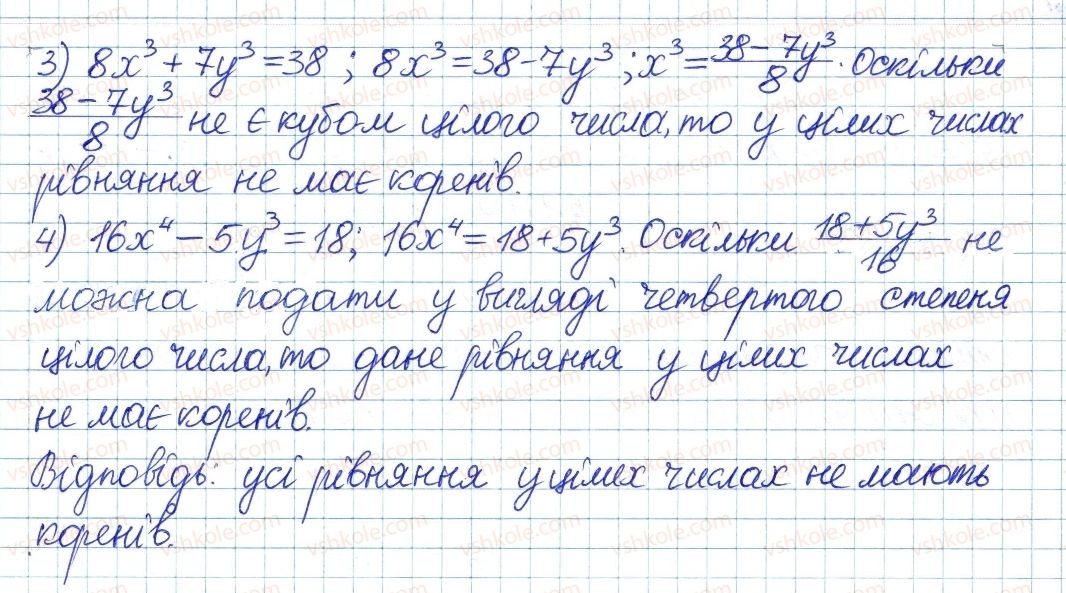 3) 8x³ + 7y³ = 38 ; 8x³ = 38 - 7y³ ; x³ = (38 - 7y³)/8 . Оскільки
(38 - 7y³)/8 не є кубом цілого числа, то у цілих числах
рівняння не має коренів.
4) 16x⁴ - 5y³ = 18; 16x⁴ = 18 + 5y³. Оскільки (18 + 5y³)/16 не
можна подати у вигляді четвертого степеня
цілого числа, то дане рівняння у цілих числах
не має коренів.
Відповідь: усі рівняння у цілих числах не мають
коренів.